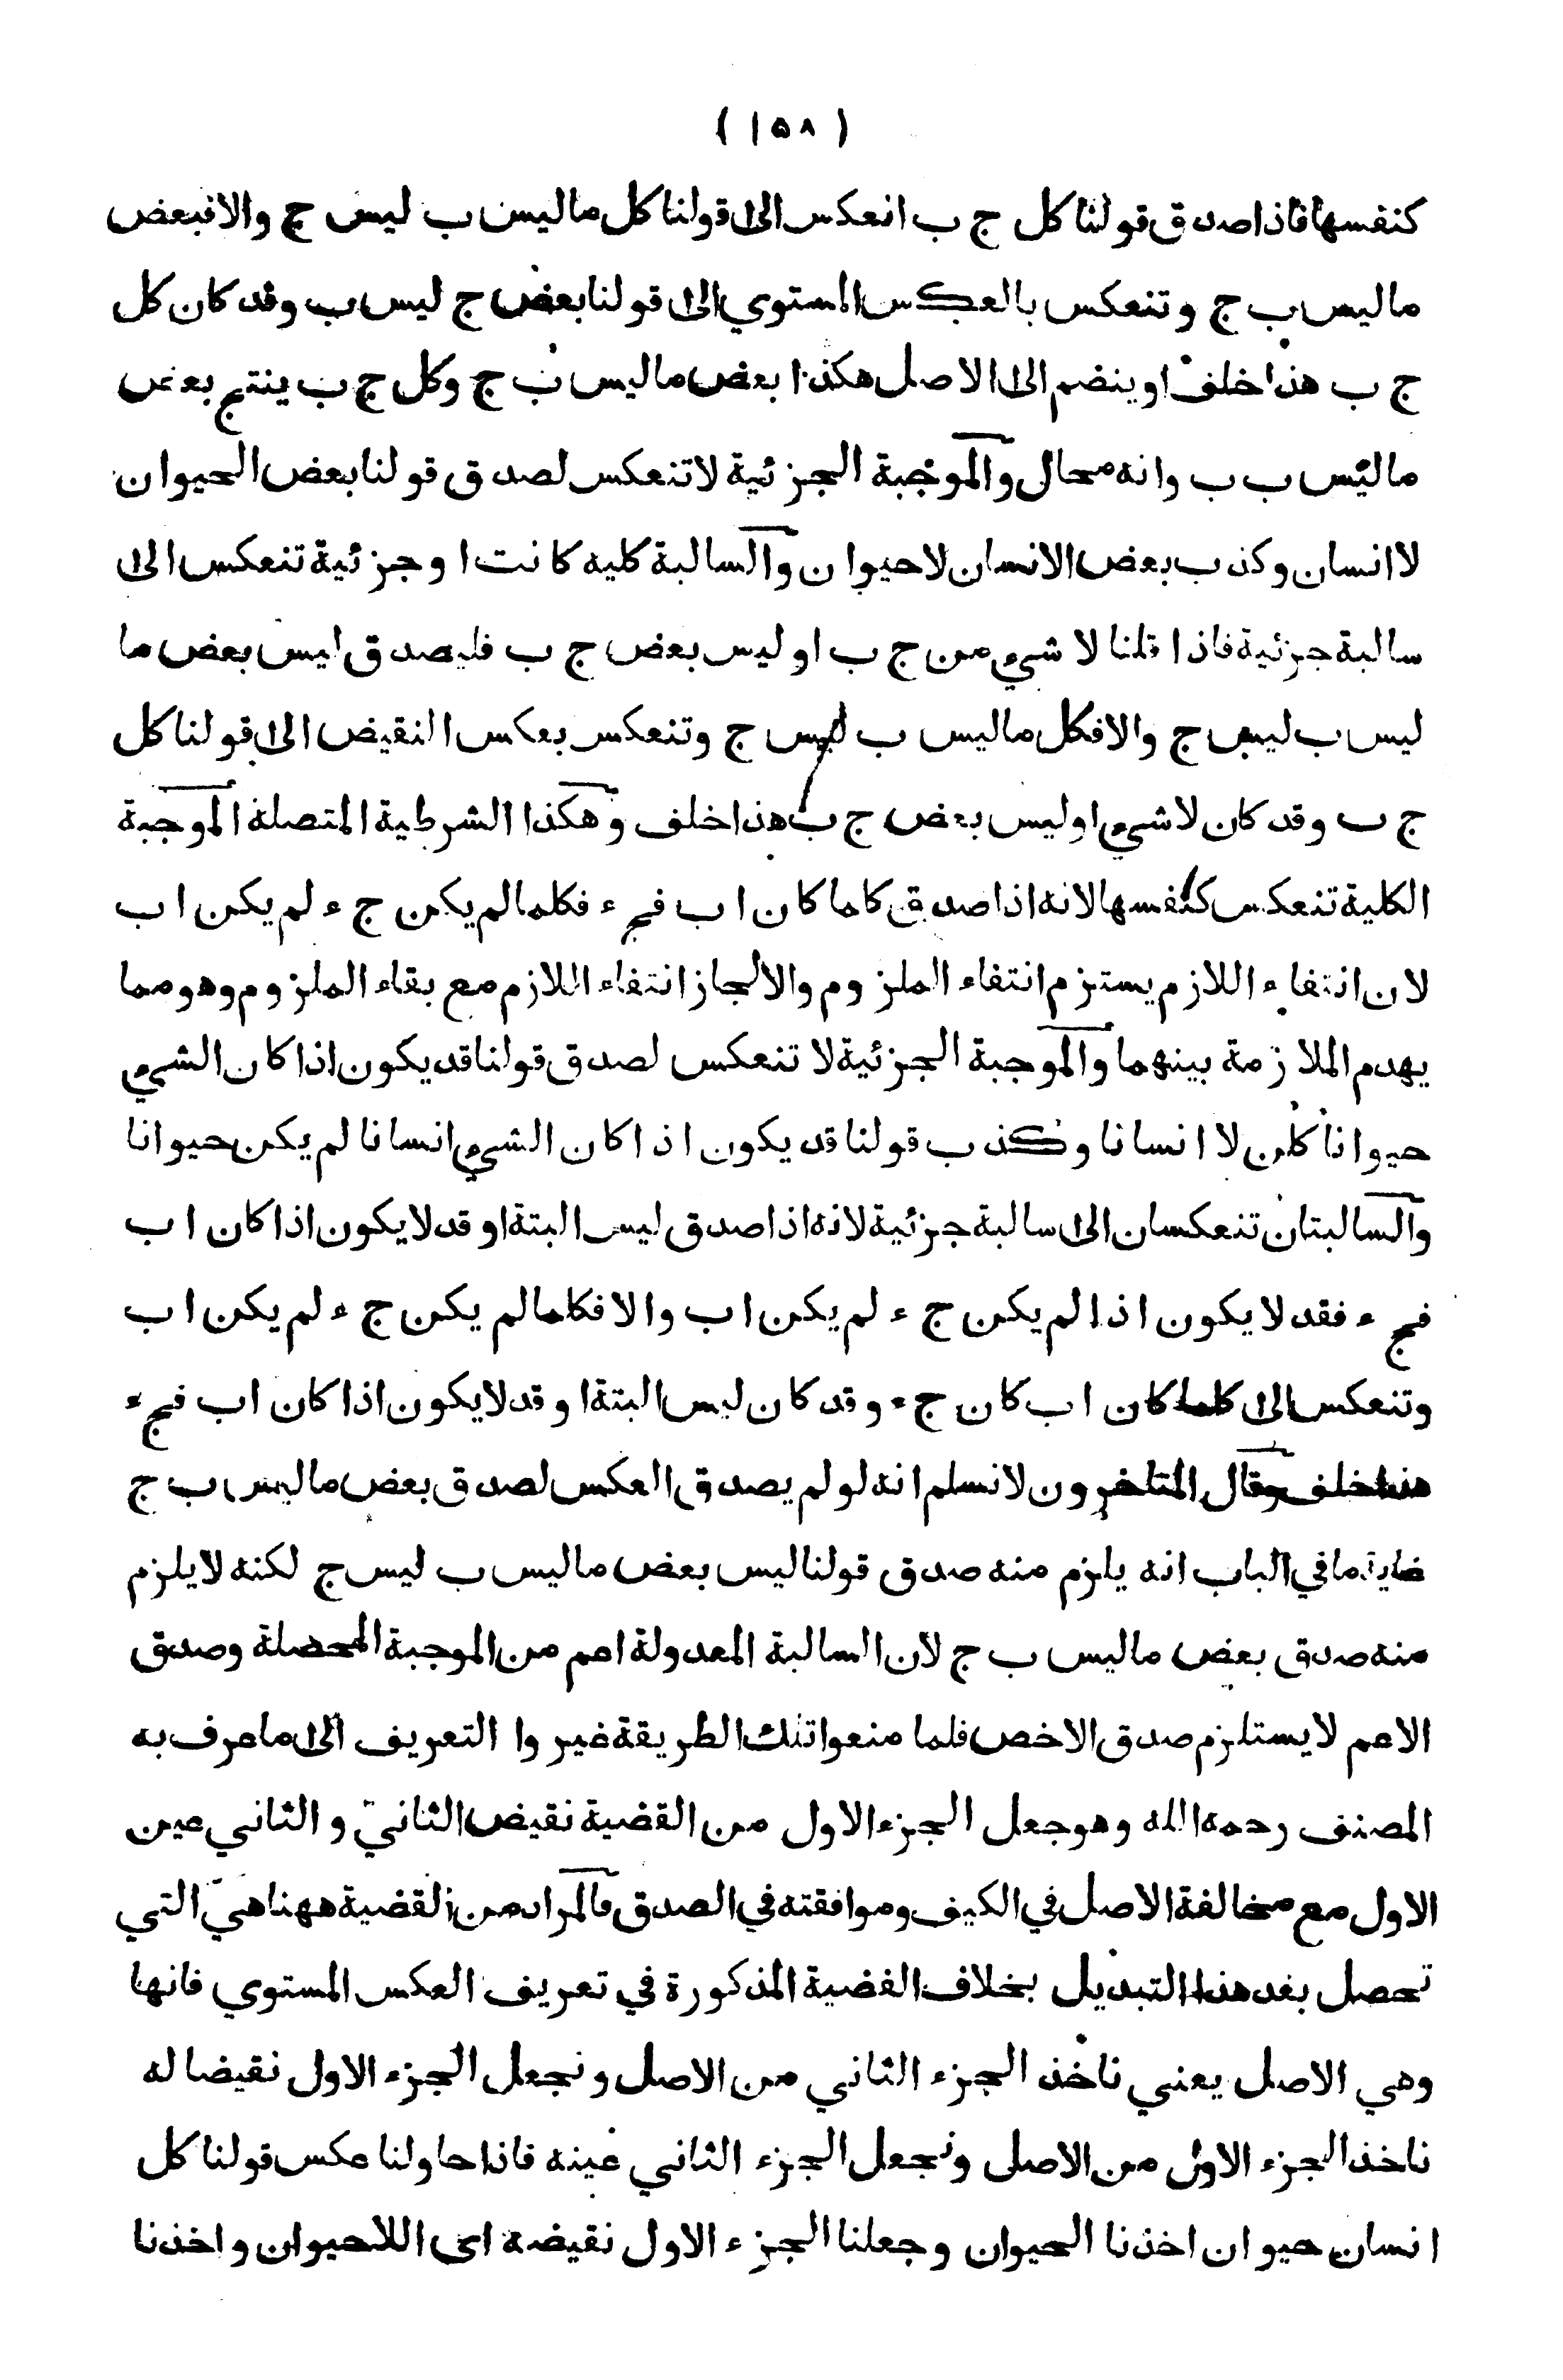 ( ١٥٨ )
كنفسها فاذا صدق قولنا كل ج ب انعكس الى قولنا كل ما ليس ب ليس ج والا فبعض
ما ليس ب ج وتنعكس بالعكس المستوي الى قولنا بعض ج ليس ب وقد كان كل
ج ب هذا خلف او ينضم الى الاصل هكذا بعض ما ليس ب ج وكل ج ب ينتج بعض
ما ليس ب ب وانه محال والموجبة الجزئية لا تنعكس لصدق قولنا بعض الحيوان
لا انسان وكذب بعض الانسان لا حيوان والسالبة كليه كانت او جزئية تنعكس الى
سالبة جزئية فاذا قلنا لا شيء من ج ب او ليس بعض ج ب فليصدق ليس بعض ما
ليس ب ليس ج والا فكل ما ليس ب ليس ج وتنعكس بعكس النقيض الى قولنا كل
ج ب وقد كان لا شيء او ليس بعض ج ب هذا خلف وهكذا الشرطية المتصلة الموجبة
الكلية تنعكس كنفسها لانه اذا صدق كلما كان ا ب فج ء فكلما لم يكن ج ء لم يكن ا ب
لان انتفاء اللازم يستزم انتفاء الملزوم والا لجاز انتفاء اللازم مع بقاء الملزوم وهو مما
يهدم الملازمة بينهما والموجبة الجزئية لا تنعكس لصدق قولنا قد يكون اذا كان الشيء
حيوانا كان لا انسانا وكذب قولنا قد يكون اذا كان الشيء انسانا لم يكن حيوانا
والسالبتان تنعكسان الى سالبة جزئية لانه اذا صدق ليس البتة او قد لا يكون اذا كان ا ب
فج ء فقد لا يكون اذا لم يكن ج ء لم يكن ا ب والا فكلما لم يكن ج ء لم يكن ا ب
وتنعكس الى كلما كان ا ب كان ج ء وقد كان ليس البتة او قد لا يكون اذا كان ا ب فج ء
هذا خلف وقال المتاخرون لا نسلم انه لو لم يصدق العكس لصدق بعض ما ليس ب ج
غاية ما في الباب انه يلزم منه صدق قولنا ليس بعض ما ليس ب ليس ج لكنه لا يلزم
منه صدق بعض ما ليس ب ج لان السالبة المعدولة اعم من الموجبة المحصلة وصدق
الاعم لا يستلزم صدق الاخص فلما منعوا تلك الطريقة غيروا التعريف الى ما عرف به
المصنف رحمه الله وهو جعل الجزء الاول من القضية نقيض الثاني و الثاني عين
الاول مع مخالفة الاصل في الكيف وموافقته في الصدق فالمراد من القضية ههنا هي التي
تحصل بعد هذا التبديل بخلاف القضية المذكورة في تعريف العكس المستوي فانها
وهي الاصل يعني ناخذ الجزء الثاني من الاصل ونجعل الجزء الاول نقيضا له
ناخذ الجزء الاول من الاصل ونجعل الجزء الثاني عينه فاذا حاولنا عكس قولنا كل
انسان حيوان اخذنا الحيوان وجعلنا الجزء الاول نقيضه اى اللاحيوان واخذنا